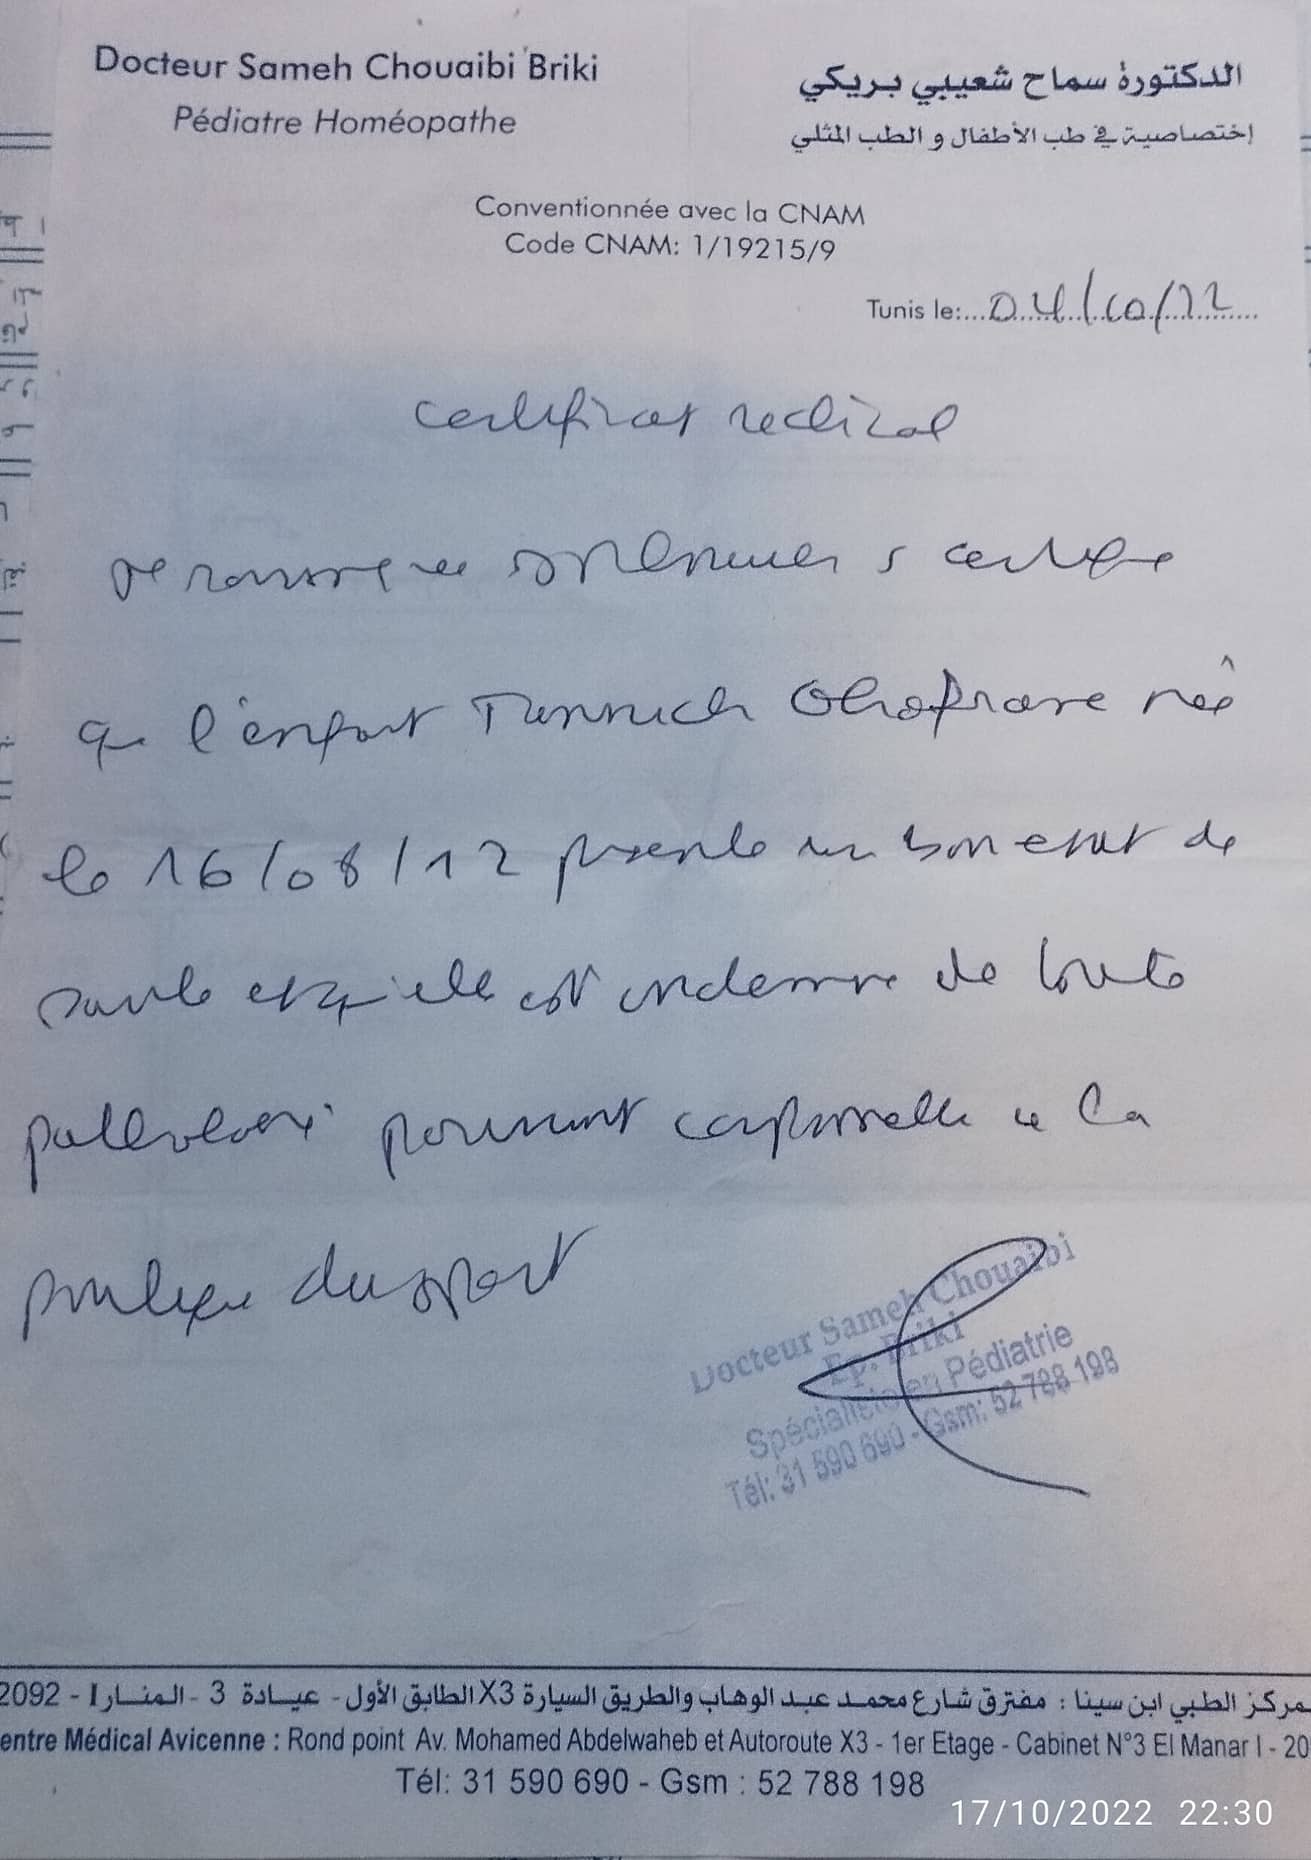 Docteur Sameh Chouaibi Briki
Pédiatre Homéopathe
الدكتورة سماح شعيبي بريكي
إختصاصية في طب الأطفال و الطب المثلي
Conventionnée avec la CNAM
Code CNAM: 1/19215/9
Tunis le:...04/10/22
Certificat medical
Je soussignee certifie
que l'enfant Ghofrane née
le 16/08/12 presente un bon etat de
sante et qu'elle est indemne de toute
pathologie pouvant la
pratique du sport
Docteur Sameh Chouaibi
Ep. Briki
Spécialiste en Pédiatrie
Tél: 31 590 690 - Gsm: 52 788 198
مركز الطبي ابن سينا : مفترق شارع محمد عبد الوهاب والطريق السيارة X3 الطابق الأول - عيادة 3 - المنار I - 2092
entre Médical Avicenne : Rond point Av. Mohamed Abdelwaheb et Autoroute X3 - 1er Etage - Cabinet N°3 El Manar I - 20
Tél: 31 590 690 - Gsm : 52 788 198
17/10/2022 22:30